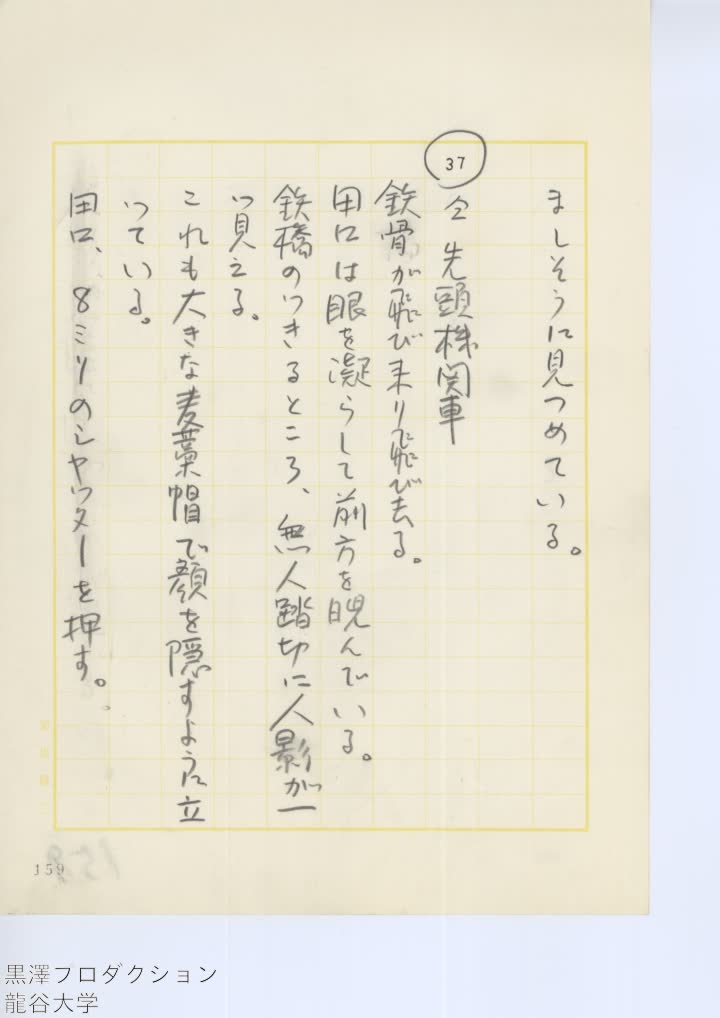 ましそうに見つめている。
37
仝 先頭機関車
鉄骨が飛び来り飛び去る。
田口は眼を凝らして前方を睨んでいる。
鉄橋のつきるところ、無人踏切に人影が一
つ見える。
これも大きな麦藁帽で顔を隠すように立
っている。
田口、8ミリのシャッターを押す。
159
黒澤プロダクション
龍谷大学